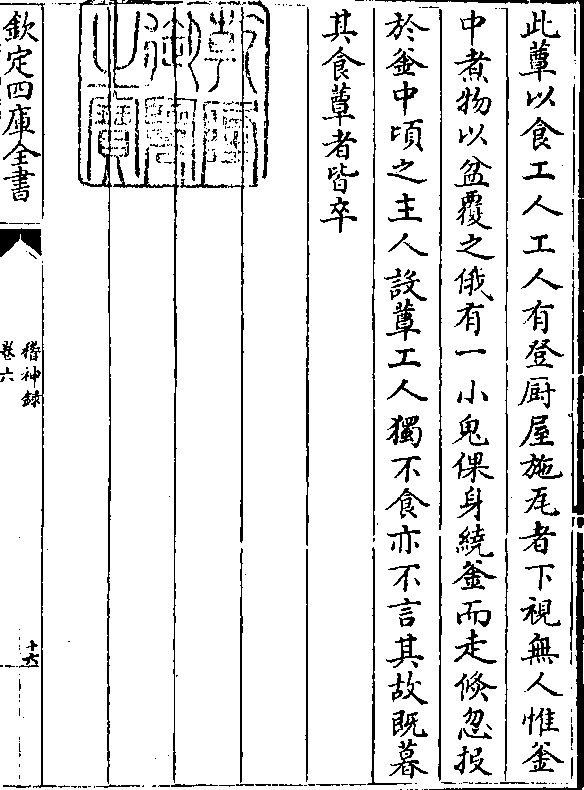 此蕈以食工人工人有登厨屋施瓦者下視無人惟釜
中煮物以盆覆之俄有一小鬼倮身繞釜而走倏忽投
於釜中頃之主人設蕈工人獨不食亦不言其故既暮
其食蕈者皆卒
乾隆御覽之寶
欽定四庫全書
稽神録
卷六
十六